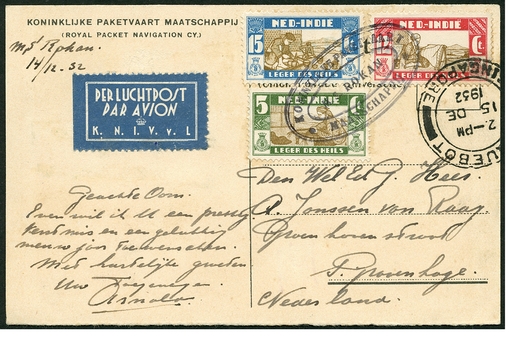 KONINKLIJKE PAKETVAART MAATSCHAPPIJ
(ROYAL PACKET NAVIGATION CY.)
m/s Rokan
14/12.32
PER LUCHTPOST
PAR AVION
K. N. I. V. v L
NED-INDIE
15 Ct.
LEGER DES HEILS
NED-INDIE
Ct.
LEGER DES HEILS
NED-INDIE
5
LEGER DES HEILS
ROKAN
MAATSCHAPPIJ
SINGAPORE
2-PM
15 DE
1932
PAQUEBOT
Geachte Oom.
Even wil ik U een prettig
Kerstmis en een gelukkig
nieuw jaar toewenschen.
Met hartelijke groeten
Uw
Arnold
Den Wel Ed G Heer
A. Janssen van Raay
Groenhovenstraat
's Gravenhage.
Nederland.